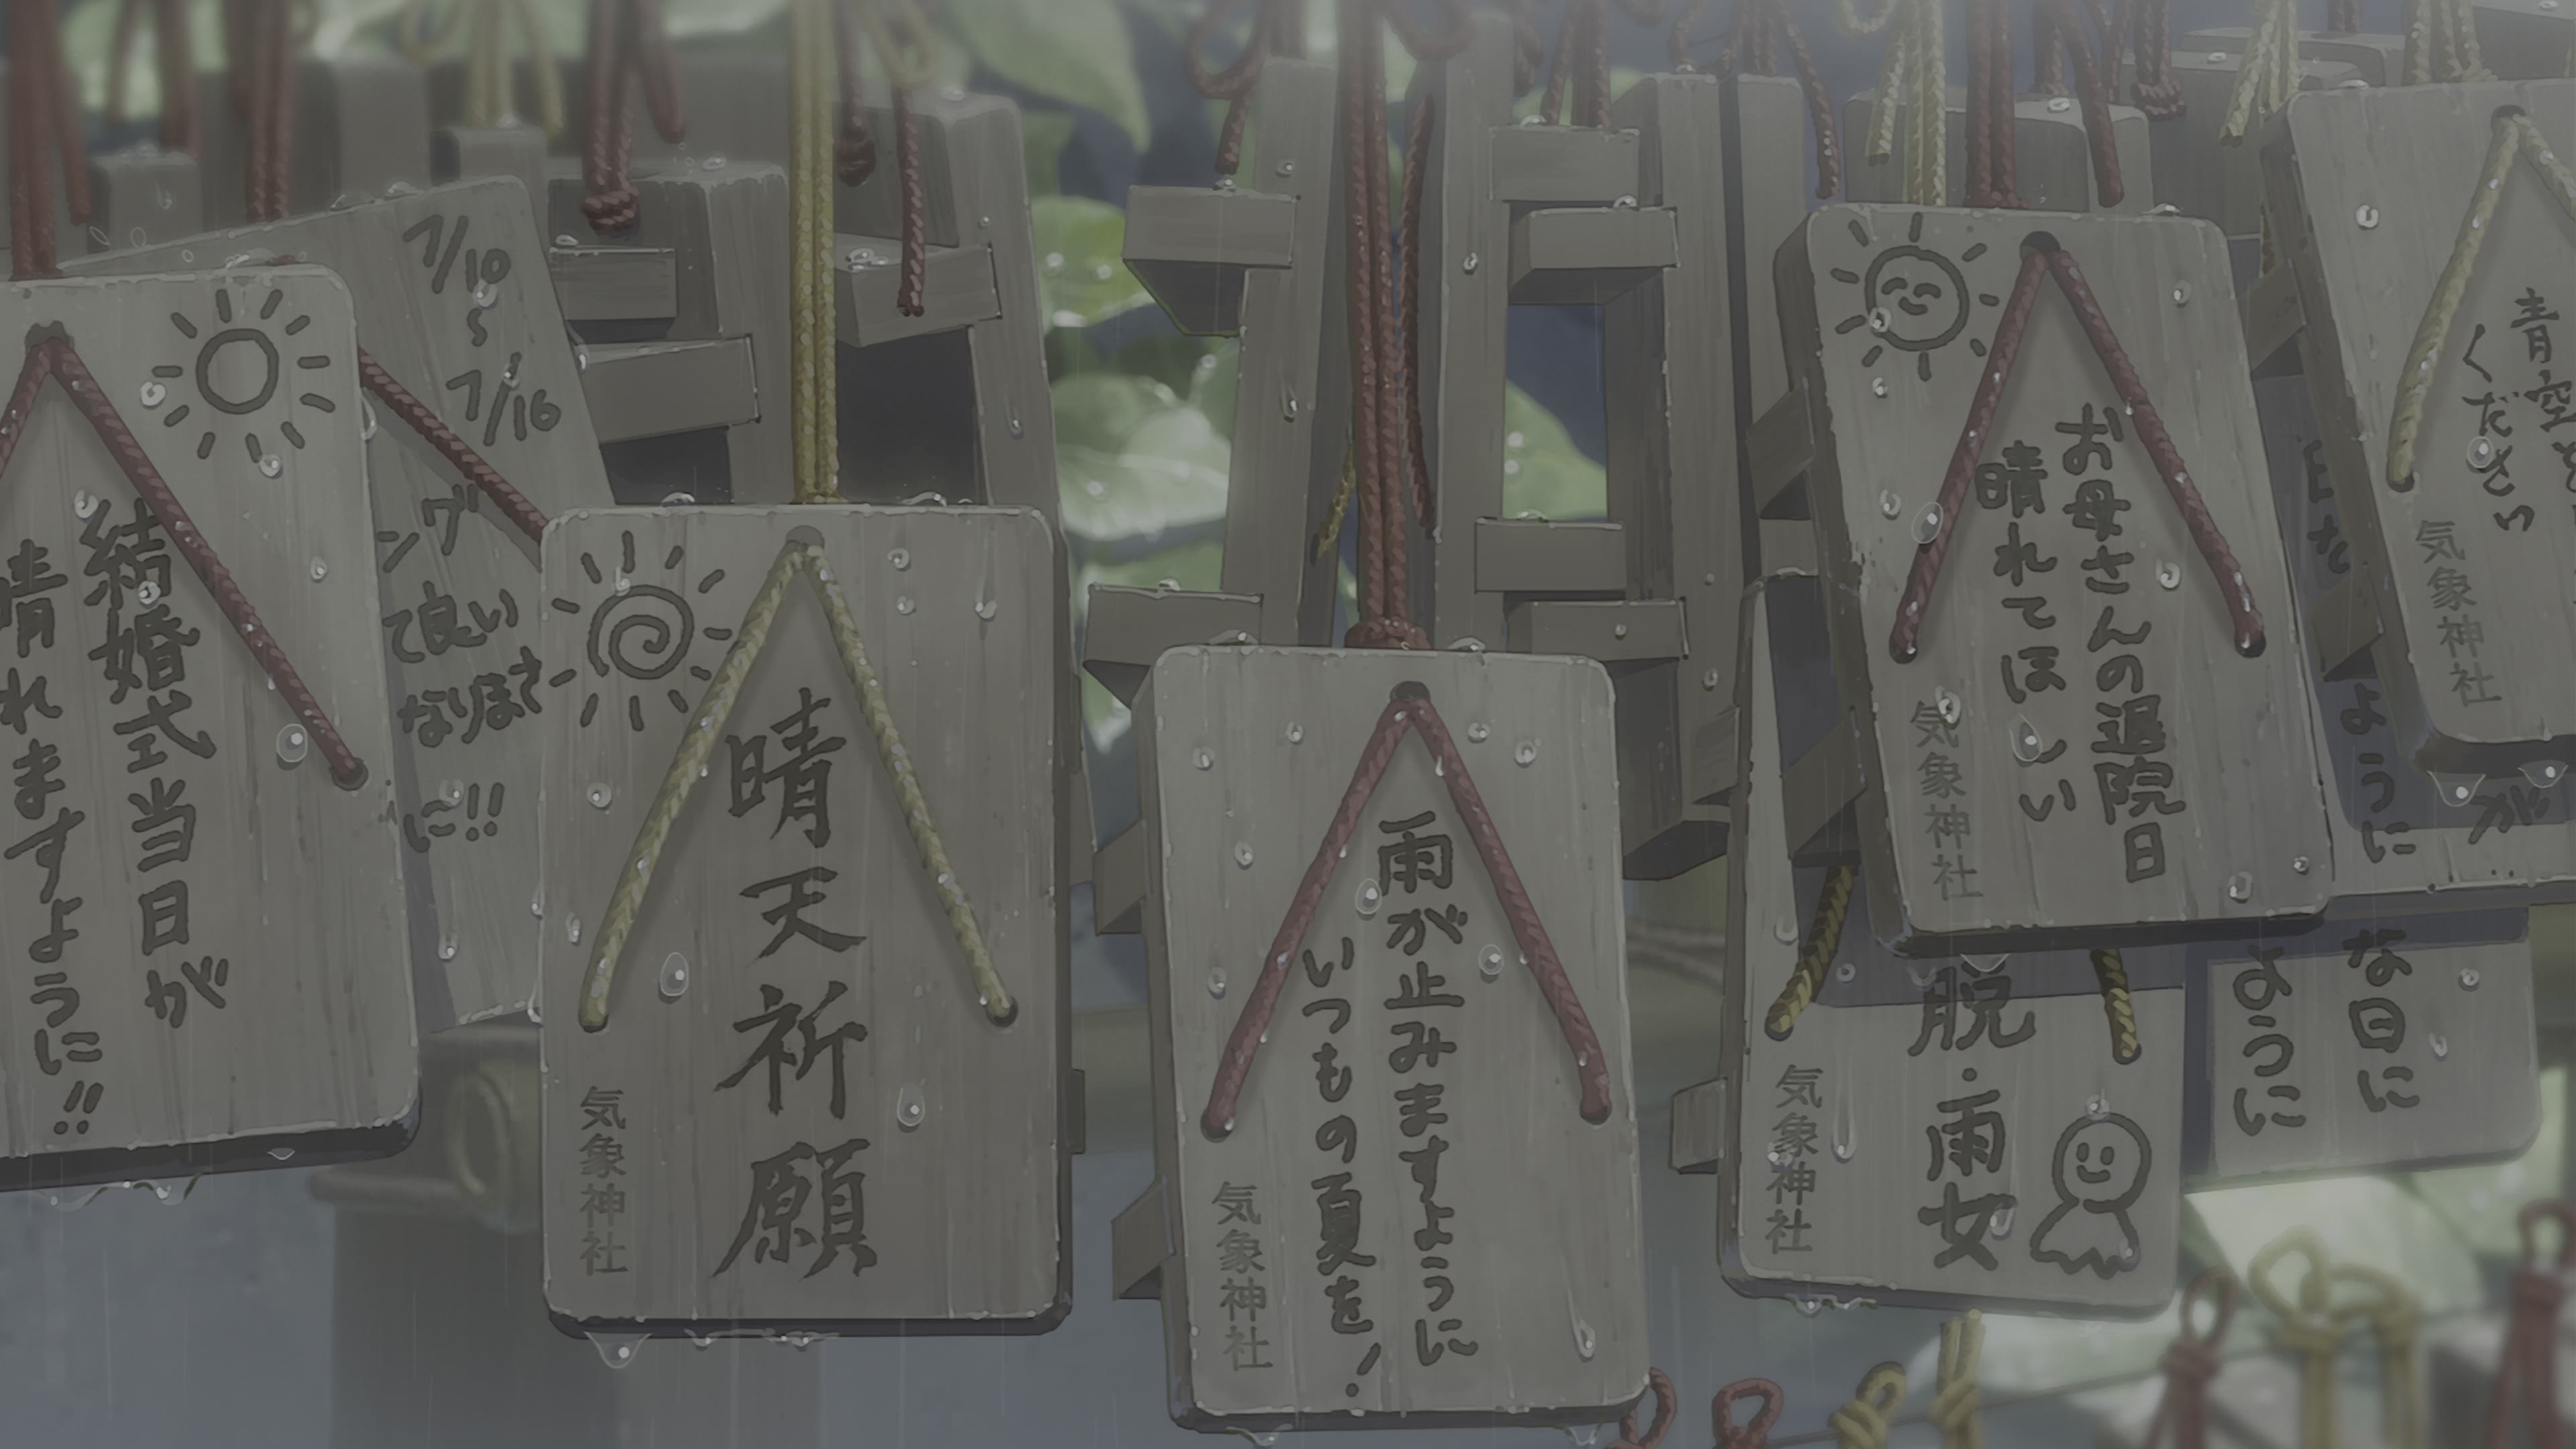 結婚式当日が
晴れますように!!
7/10
〜
7/16
ング
て良い
なりまさ
に!!
晴天祈願
気象神社
雨が止みますように
いつもの夏を!
気象神社
お母さんの退院日
晴れてほしい
気象神社
脱・雨女
気象神社
青空を
ください
気象神社
ように
が
な日に
ように